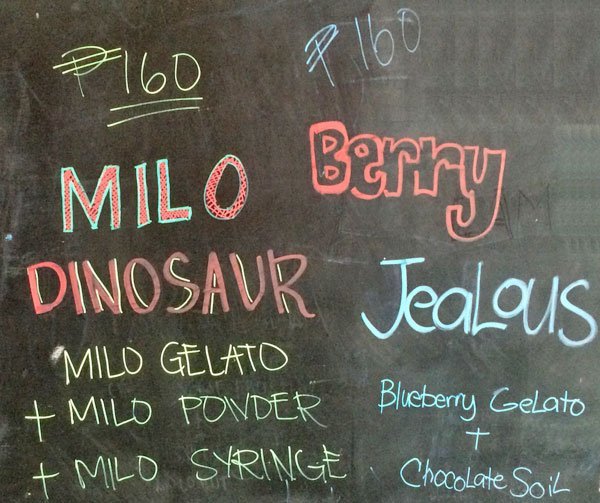 ₱160
MILO
DINOSAUR
MILO GELATO
+ MILO POWDER
+ MILO SYRINGE
₱160
Berry
JeaLous
Blueberry GeLato
+
ChocoLate SoiL